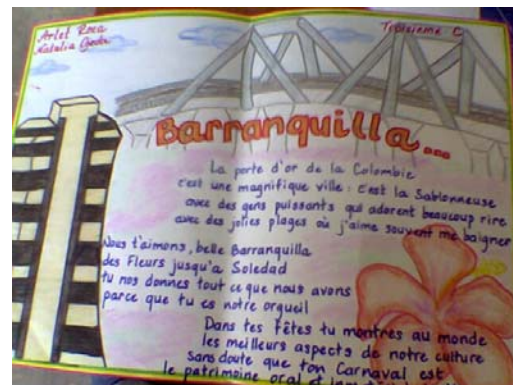 Arlet Roca
Natalia
Troisieme C
Barranquilla...
La porte d'or de la Colombie
c'est une magnifique ville: c'est la Sablonneuse
avec des gens puissants qui adorent beaucoup rire
avec des jolies plages où j'aime souvent me baigner
Nous t'aimons, belle Barranquilla
des Fleurs jusqu'a Soledad
tu nos donnes tout ce que nous avons
parce que tu es notre orgueil
Dans tes fêtes tu montres au monde
les meilleurs aspects de notre culture
sans doute que ton Carnaval est
le patrimoine oral et